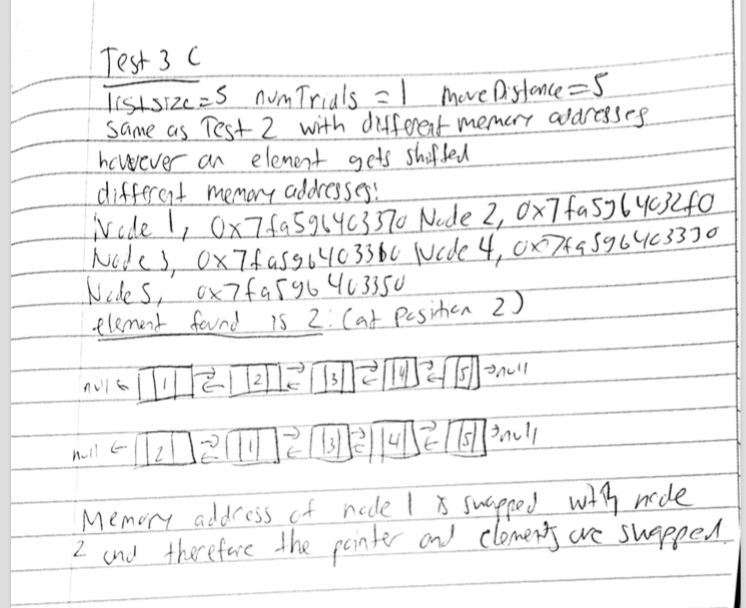 Test 3 C
listsize=5 numTrials =1 MoveDistance=5
Same as Test 2 with different memory addresses
however an element gets shifted
different memory addresses:
Node 1, 0x7fa596403370 Node 2, 0x7fa5964032f0
Node 3, 0x7fa596403360 Node 4, 0x7fa596403390
Node 5, 0x7fa596403350
element found is 2: (at position 2)
null ← 1 ⇄ 2 ⇄ 3 ⇄ 4 ⇄ 5 → null
null ← 2 ⇄ 1 ⇄ 3 ⇄ 4 ⇄ 5 → null
Memory address of node 1 is swapped with node
2 and therefore the pointer and elements are swapped.